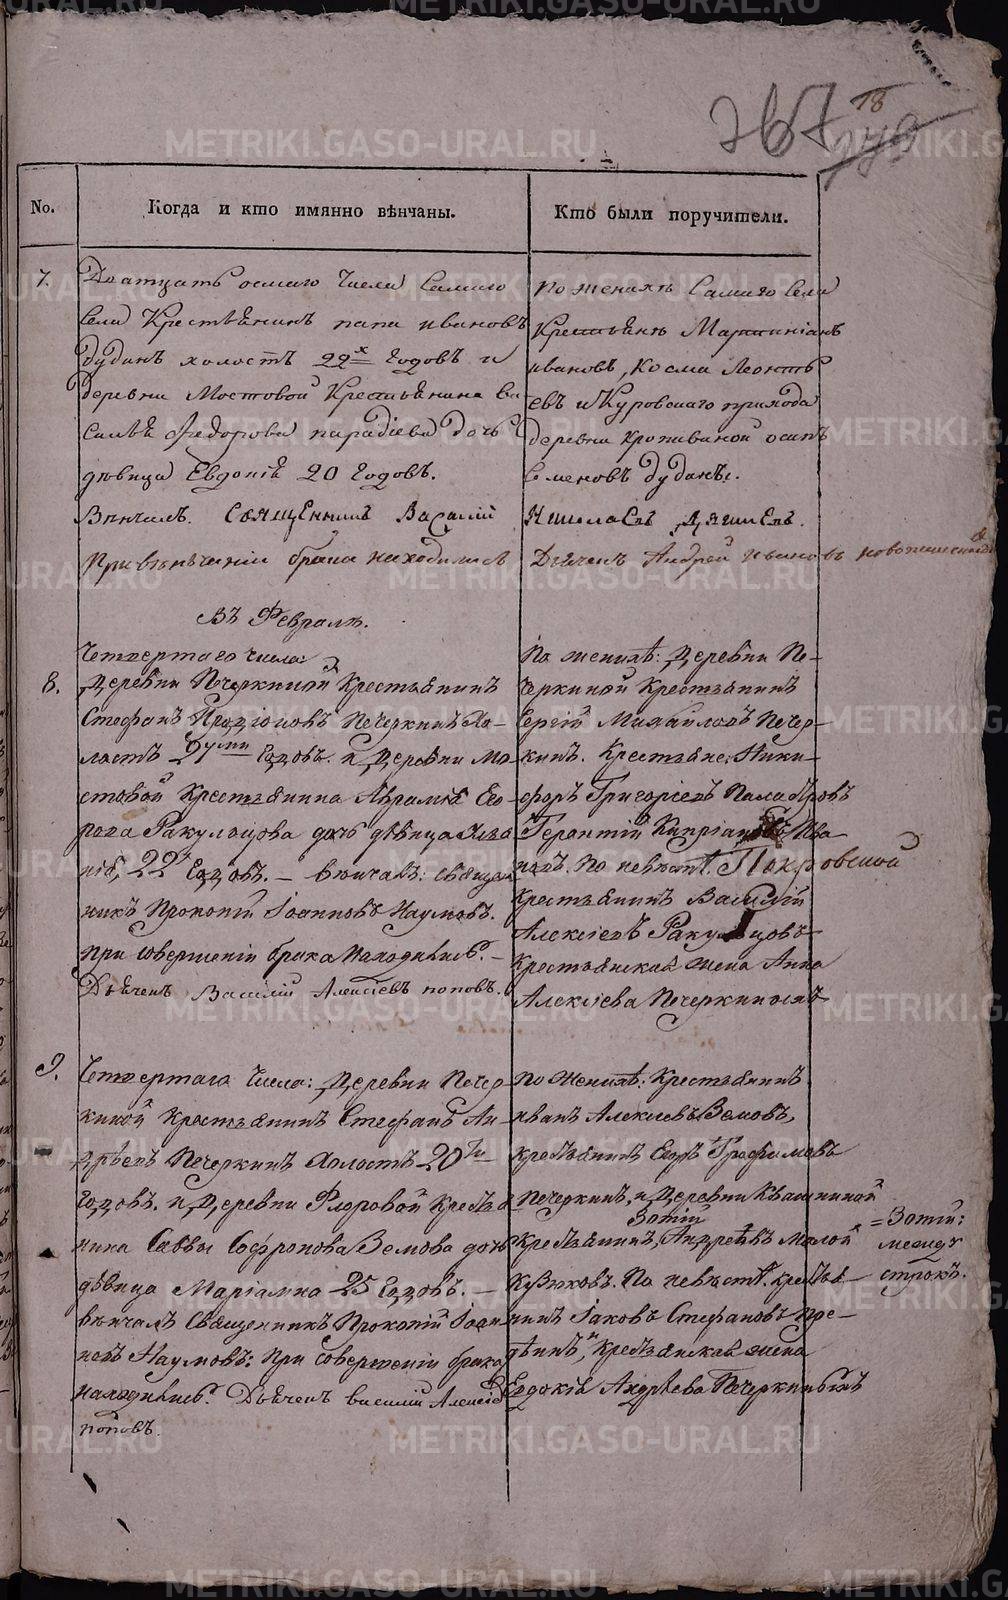 367 18
No. Когда и кто имянно вѣнчаны. Кто были поручители.
7. Дватцать осмаго Числа Самаго
Села Крестьянинъ папа ивановъ
Дуданъ холостъ 22х Годовъ и
деревни Мостовой Крестьянина Ва
силья Федорова дочь
дѣвица Евдокія 20 Годовъ.
Вѣнчалъ. Священникъ Василій
При вѣнчаніи брака находился
По женихѣ Самаго Села
Крестьяне Мартиніанъ
ивановъ, Косма Леонть
евъ и Куровскаго прихода
деревни осипъ
Семеновъ Дуданъ.
Дьяченъ Андрей Ивановъ
Въ Февралѣ.
Четвертаго числа:
8. Деревни Печеркиной Крестьянинъ
Стефанъ Печеркинъ Хо-
лостъ Годовъ. и Деревни Мо-
стовой Крестьянина Аврамія Его-
рова Ракульцова дочь дѣвица
22 Годовъ. – вѣнчалъ: священ
никъ Прокопій Іоанновъ Наумовъ.
при совершеніи брака находились. –
Дьяченъ Василій Алексіевъ поповъ.
По женихѣ: Деревни Пе-
черкиной Крестьянинъ
Сергій Михайловъ Печер-
кинъ. Крестьяне: Ники-
форъ Григоріевъ
Геронтій Кипріановъ Ива
новъ. По невѣстѣ. Покровской
Крестьянинъ Василій
Алексіевъ Ракульцовъ
Крестьянская жена Анна
Алексіева Печеркиныхъ
9. Четвертаго Числа: Деревни Печер-
киной Крестьянинъ Стефанъ Ан-
дрѣевъ Печеркинъ Холостъ 20ти
Годовъ. и Деревни Фроровой Кресть
нина Саввы Софронова Земова дочь
дѣвица Маріамна 25 Годовъ. –
вѣнчалъ Священникъ Прокопій Іоан
новъ Наумовъ: при совершеніи брака
находились. Дьяченъ василій Алексіе
поповъ.
По женихѣ: Крестьянинъ
иванъ Алексіевъ Земовъ,
крестьянинъ Егоръ Трофимовъ
Печеркинъ, и Деревни Квашниной
Зотій
Крестьянинъ, Андрѣевъ Малой
По невѣстѣ. кресть
нинъ Іаковъ Стефановъ Пре-
дѣинъ, Крестьянская жена
Евдокія Андрѣева Печеркиныхъ
= Зотій:
между
строкъ.
METRIKI.GASO-URAL.RU